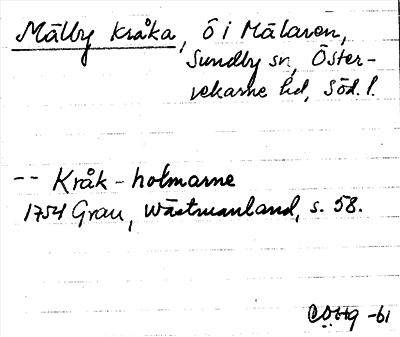 Mälby Kråka, ö i Mälaren,
Sundby sn, Öster-
rekarne hd, Söd. l.
-- Kråk-holmarne
1754 Grau, Wästmanland, s. 58.
-61